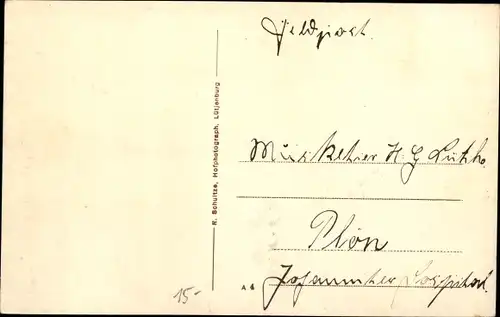 Feldpost.
R. Schultze, Hofphotograph, Lütjenburg
Musketier H. G.
Plön
Johanniter Lospital
A 4
15-